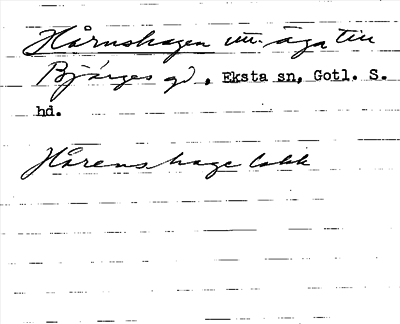 Hårnshagen un. äga till
Bjärges gd, Eksta sn, Gotl. S.
hd.
Hårens hage lakk